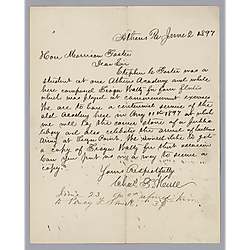 Athens Pa June 2 1897
Hon Morrison Foster
Dear Sir
Stephen C Foster was a
student at our Athens Academy and while
here composed Tioga Waltz for four flutes
which was played at commencement exercises
We are to have a centennial service of the
old Academy here in Aug 1897 at which
we will lay the corner stone of a public
library and also celebrate the arrival of Sullivans
Army at Tioga Point. We would like to get
a copy of Tioga Waltz for that occasion
Can you put us in a way to secure a
copy.
Yours Respectfully
Chas. E.
June 23
to Percy F. Smith